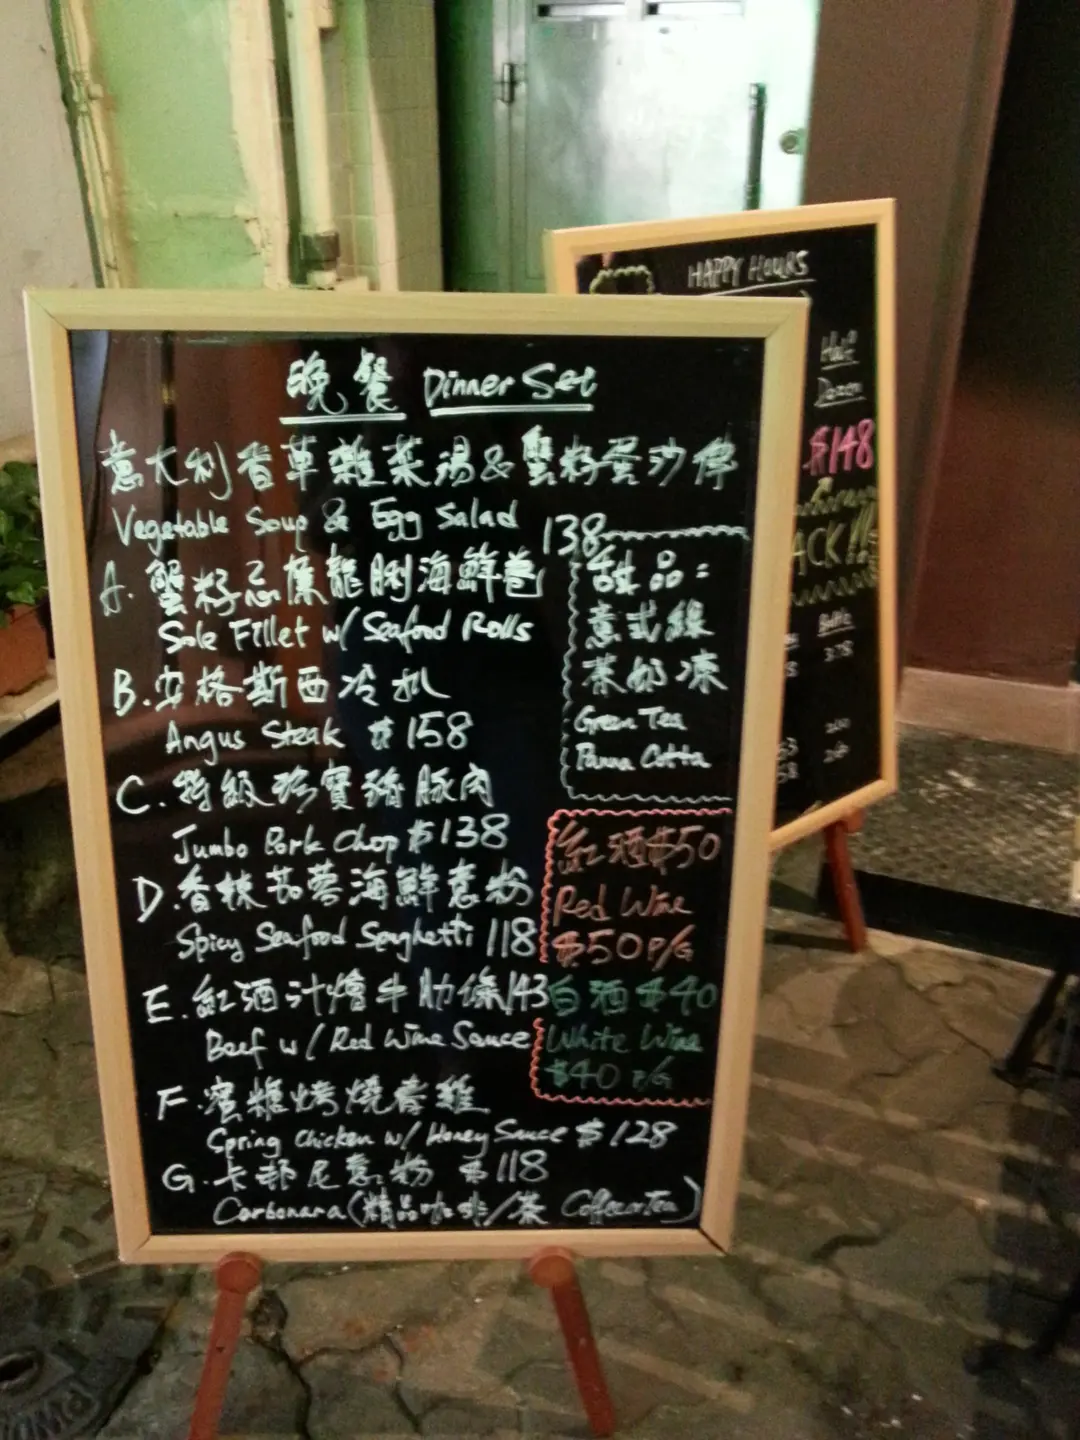 晚餐 Dinner Set
意大利香草雜菜湯&蟹籽蛋沙律
Vegetable Soup & Egg Salad
A. 蟹籽忌廉龍脷海鮮卷 138
Sole Fillet w/ Seafood Rolls
B. 安格斯西冷扒
Angus Steak $158
C. 特級珍寶豬肉
Jumbo Pork Chop $138
D. 香辣茄蓉海鮮意粉
Spicy Seafood Spaghetti 118
E. 紅酒汁燴牛肋條 143
Beef w/ Red Wine Sauce
F. 蜜糖烤燒春雞
Spring Chicken w/ Honey Sauce $128
G. 卡邦尼意粉 $118
Carbonara (精品咖啡/茶 Coffee or Tea)
甜品:
意式綠
茶奶凍
Green Tea
Panna Cotta
紅酒$50
Red Wine
$50 P/G
白酒$40
White Wine
$40 P/G
HAPPY HOURS
Half
Dozen
$148
ACK!!
Bottle